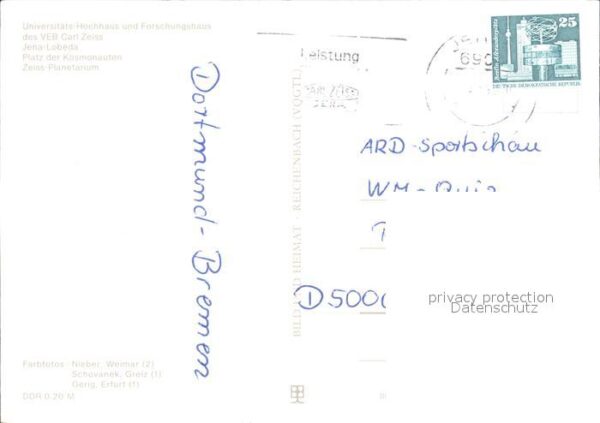 Universitäts-Hochhaus und Forschungshaus
des VEB Carl Zeiss
Jena-Lobeda
Platz der Kosmonauten
Zeiss-Planetarium
Dortmund - Bremen
Farbfotos: Nieber, Weimar (2)
Schovanek, Greiz (1)
Gerig, Erfurt (1)
DDR 0.20 M
BILD UND HEIMAT · REICHENBACH (VOGTL
Leistung
JENA
690
25
Berlin, Alexanderplatz
DEUTSCHE DEMOKRATISCHE REPUBLIK
ARD-Sportschau
WM-
T
D 500
privacy protection
Datenschutz